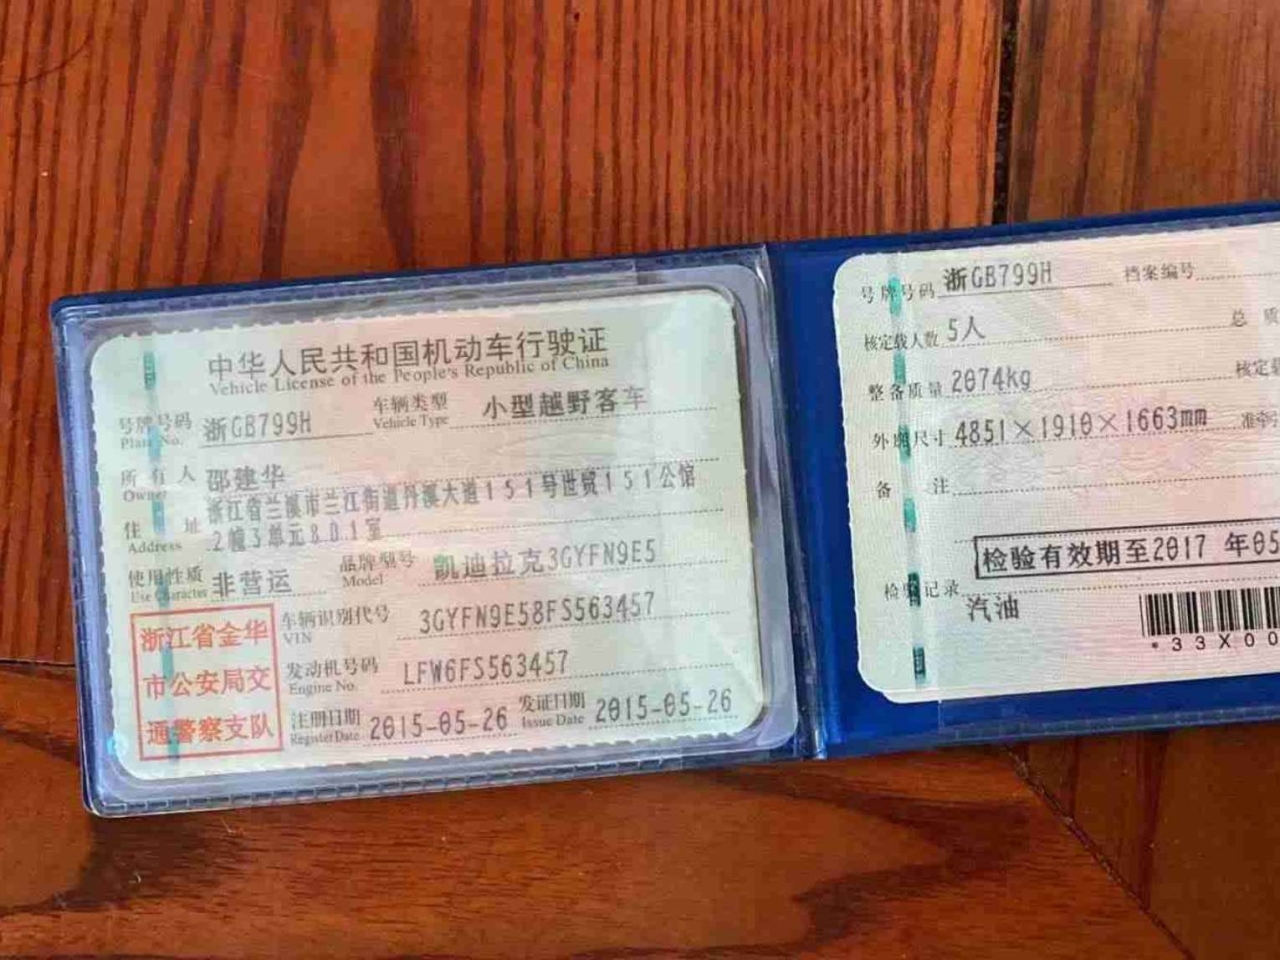 中华人民共和国机动车行驶证
Vehicle License of the People's Republic of China
号牌号码 浙GB799H 车辆类型 小型越野客车
Plate No. Vehicle Type
所有人 邵建华
Owner
住址 浙江省兰溪市兰江街道丹溪大道151号世贸151公馆
Address 2幢3单元801室
使用性质 非营运 品牌型号 凯迪拉克3GYFN9E5
Use Character Model
浙江省金华
市公安局交
通警察支队
车辆识别代号 3GYFN9E58FS563457
VIN
发动机号码 LFW6FS563457
Engine No.
注册日期 2015-05-26 发证日期 2015-05-26
Register Date Issue Date
号牌号码 浙GB799H 档案编号
核定载人数 5人 总质
整备质量 2074kg 核定载
外廓尺寸 4851×1910×1663mm 准牵
备注
检验有效期至2017 年05
检验记录
汽油
*33X00